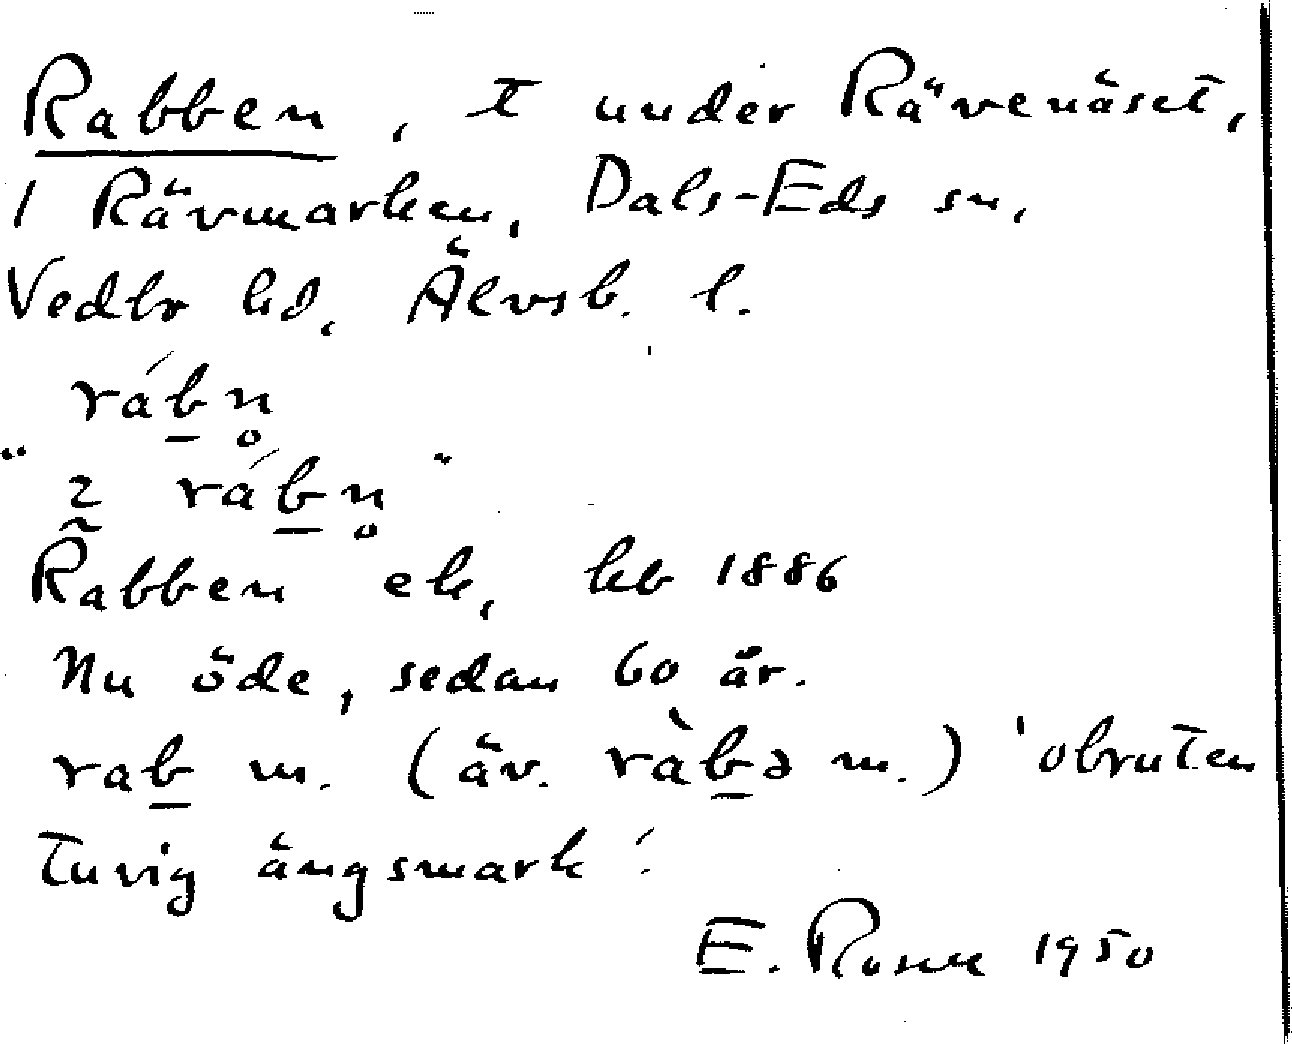 Rabben, t under Rävenäset,
1 Rävmarken, Dals-Eds sn,
Vedbr hd, Älvsb. l.
rábn̥
"2 rábn̥"
Rabben ek, kb 1886
Nu öde, sedan 60 år.
rab m. (äv. ràbə m.) 'obruten
tuvig ängsmark'.
E. 1950